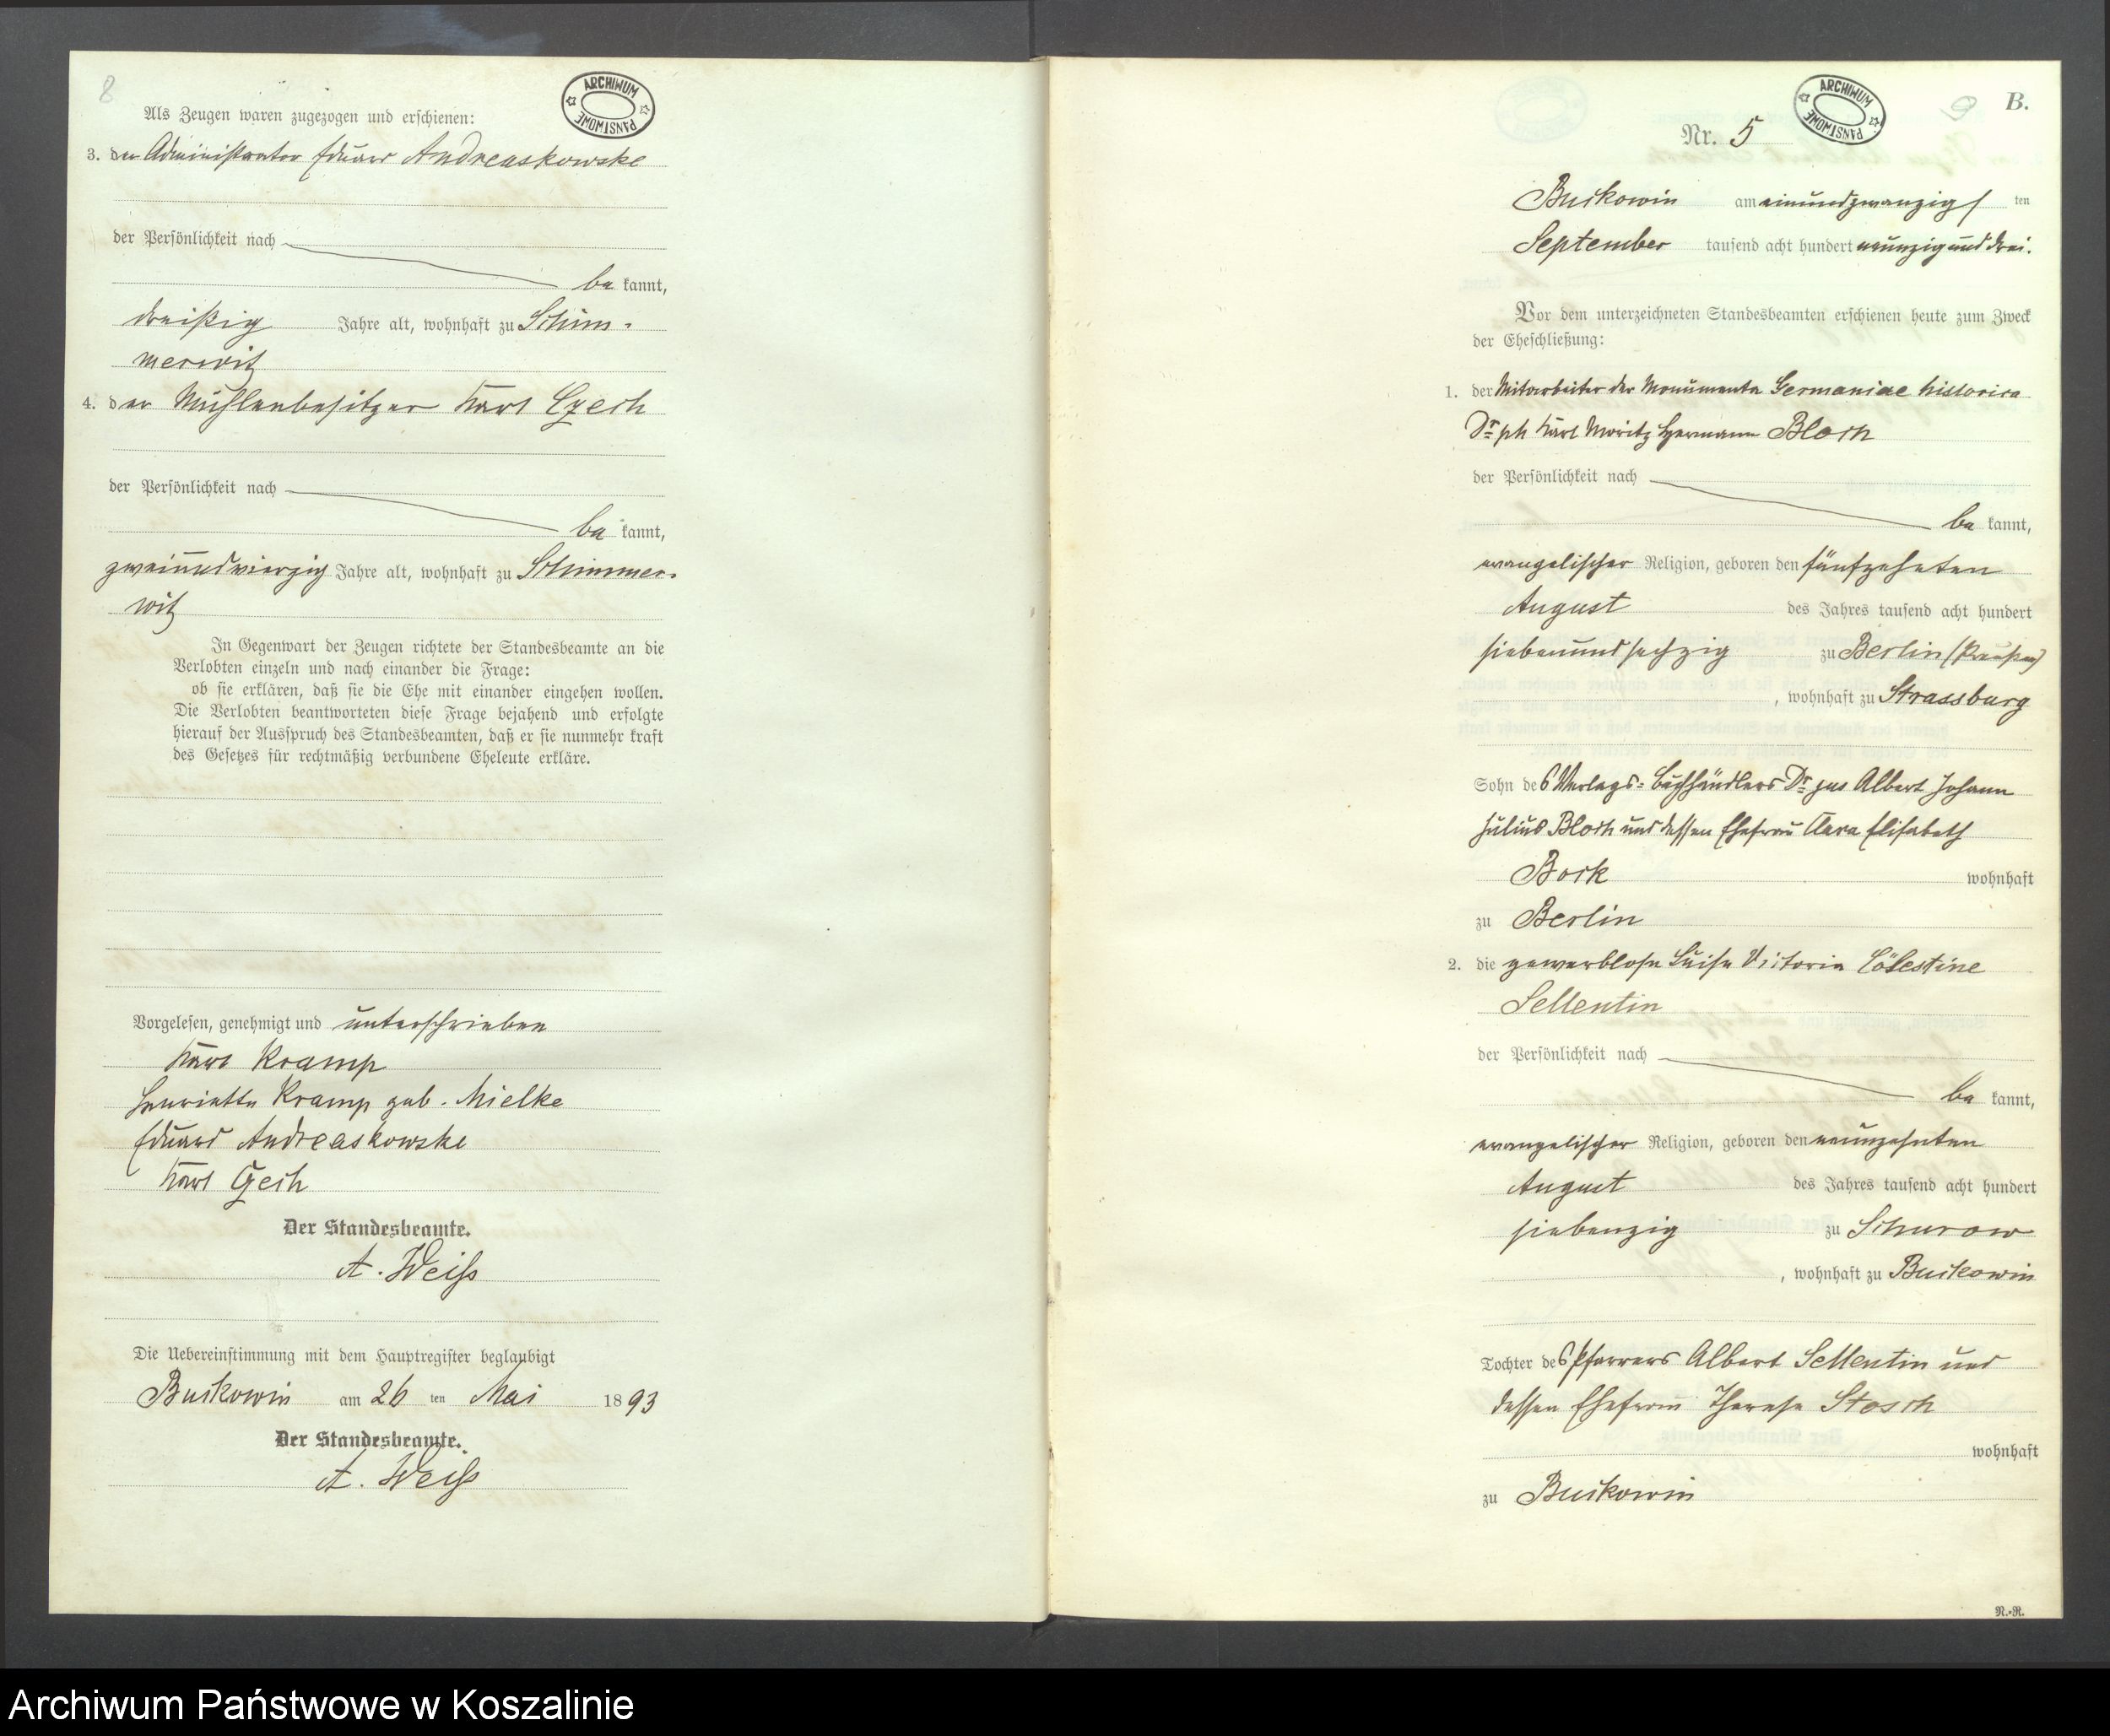 8
ARCHIWUM PAŃSTWOWE
Als Zeugen waren zugezogen und erschienen:
3. der Administrator Eduard Andreaskowske
der Persönlichkeit nach
be kannt,
dreißig Jahre alt, wohnhaft zu Schim-
merwitz
4. der Mühlenbesitzer Karl Czech
der Persönlichkeit nach
be kannt,
zweiundvierzig Jahre alt, wohnhaft zu Schimmer-
witz
In Gegenwart der Zeugen richtete der Standesbeamte an die
Verlobten einzeln und nach einander die Frage:
ob sie erklären, daß sie die Ehe mit einander eingehen wollen.
Die Verlobten beantworteten diese Frage bejahend und erfolgte
hierauf der Ausspruch des Standesbeamten, daß er sie nunmehr kraft
des Gesetzes für rechtmäßig verbundene Eheleute erkläre.
Vorgelesen, genehmigt und unterschrieben
Karl Kramp
Henriette Kramp geb. Mielke
Eduard Andreaskowske
Karl Czech
Der Standesbeamte.
A. Weiß
Die Uebereinstimmung mit dem Hauptregister beglaubigt
Buckowin am 26 ten Mai 1893
Der Standesbeamte.
A. Weiß
9
B.
ARCHIWUM PAŃSTWOWE
Nr. 5
Buckowin am einundzwanzigs ten
September tausend acht hundert neunzig und drei.
Vor dem unterzeichneten Standesbeamten erschienen heute zum Zweck
der Eheschließung:
1. der Mitarbeiter der Monumenta Germaniae historica
Dr ph Karl Moritz Hermann Bloch
der Persönlichkeit nach
be kannt,
evangelischer Religion, geboren den fünfzehnten
August des Jahres tausend acht hundert
siebenundsechzig zu Berlin (Preußen)
, wohnhaft zu Strassburg
Sohn des Verlags-Buchhändlers Dr jus Albert Johann
Julius Bloch und dessen Ehefrau Clara Elisabeth
Bock wohnhaft
zu Berlin
2. die gewerblose Luise Victoria Cölestine
Sellentin
der Persönlichkeit nach
be kannt,
evangelischer Religion, geboren den neunzehnten
August des Jahres tausend acht hundert
siebenzig zu Schurow
, wohnhaft zu Buckowin
Tochter des Pfarrers Albert Sellentin und
dessen Ehefrau Therese Stosch
wohnhaft
zu Buckowin
N.-R.
Archiwum Państwowe w Koszalinie